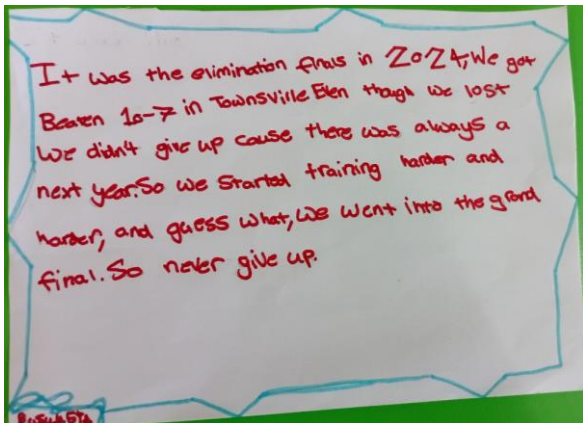 It was the elimination finals in 2024, We got
Beaten 10-7 in Townsville Even though we lost
We didn't give up cause there was always a
next year. So we started training harder and
harder, and guess what, we went into the grand
final. So never give up.